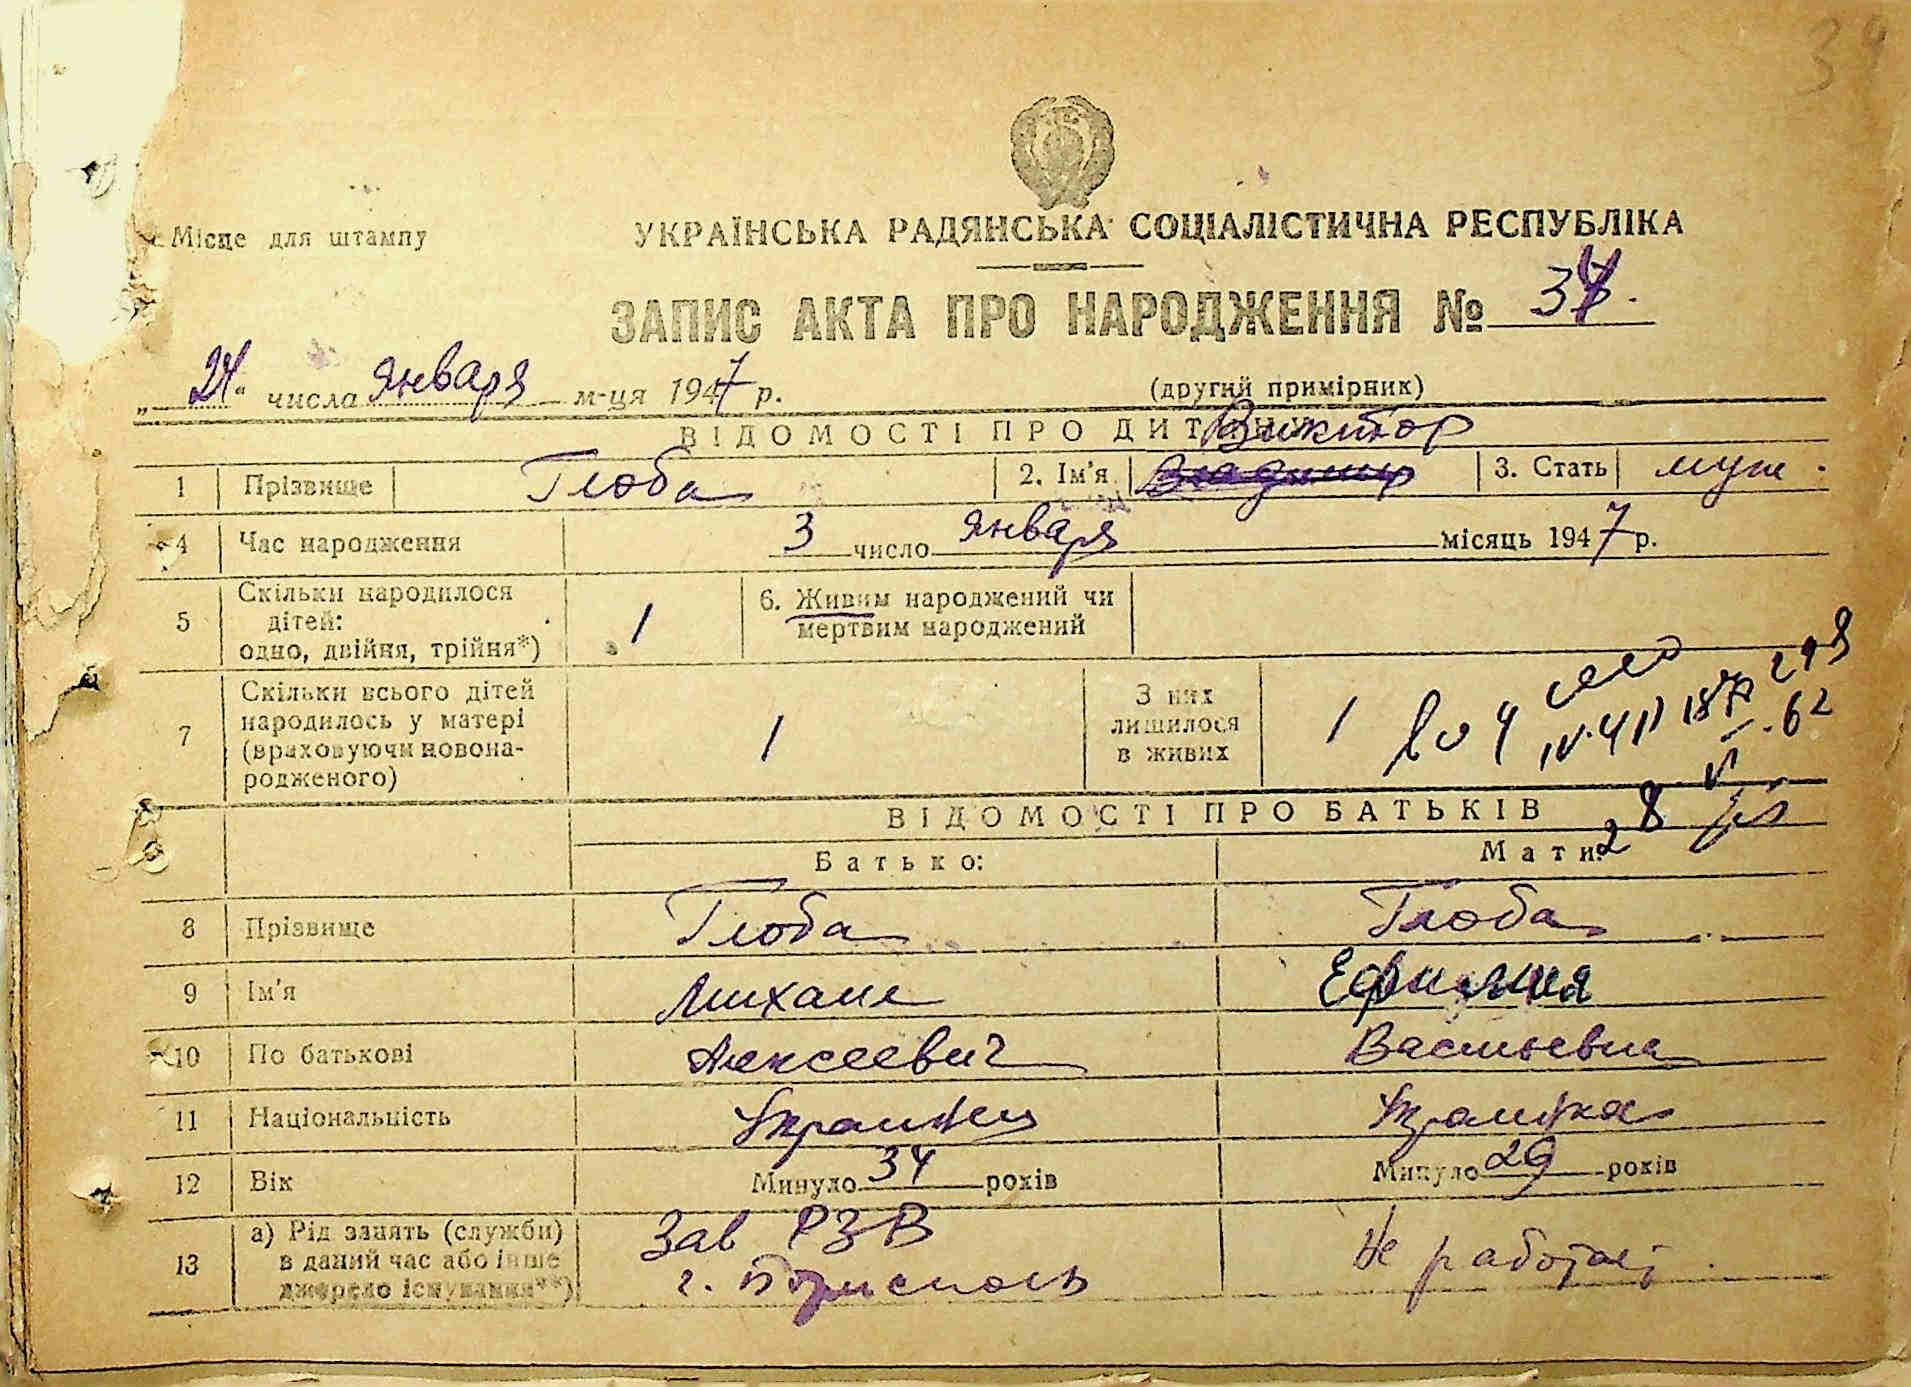 34
Місце для штампу
УКРАЇНСЬКА РАДЯНСЬКА СОЦІАЛІСТИЧНА РЕСПУБЛІКА
ЗАПИС АКТА ПРО НАРОДЖЕННЯ № 34.
„24“ числа января м-ця 1947 р.
(другий примірник)
ВІДОМОСТІ ПРО ДИТИНУ
Виктор
1 Прізвище Глоба 2. Ім'я Владимир 3. Стать муж.
4 Час народження 3 число января місяць 1947 р.
5 Скільки народилося дітей: одно, двійня, трійня*) 1 6. Живим народжений чи мертвим народжений
7 Скільки всього дітей народилось у матері (враховуючи новона-родженого) 1 З них лишилося в живих 1
ВІДОМОСТІ ПРО БАТЬКІВ
Батько: Мати:
8 Прізвище Глоба Глоба
9 Ім'я Михаил Ефимия
10 По батькові Алексеевич Васильевна
11 Національність Украинец Украинка
12 Вік Минуло 34 років Минуло 29 років
13 а) Рід занять (служби) в даний час або інше джерело існування**) Зав РЗВ г. Борисполь Не работает